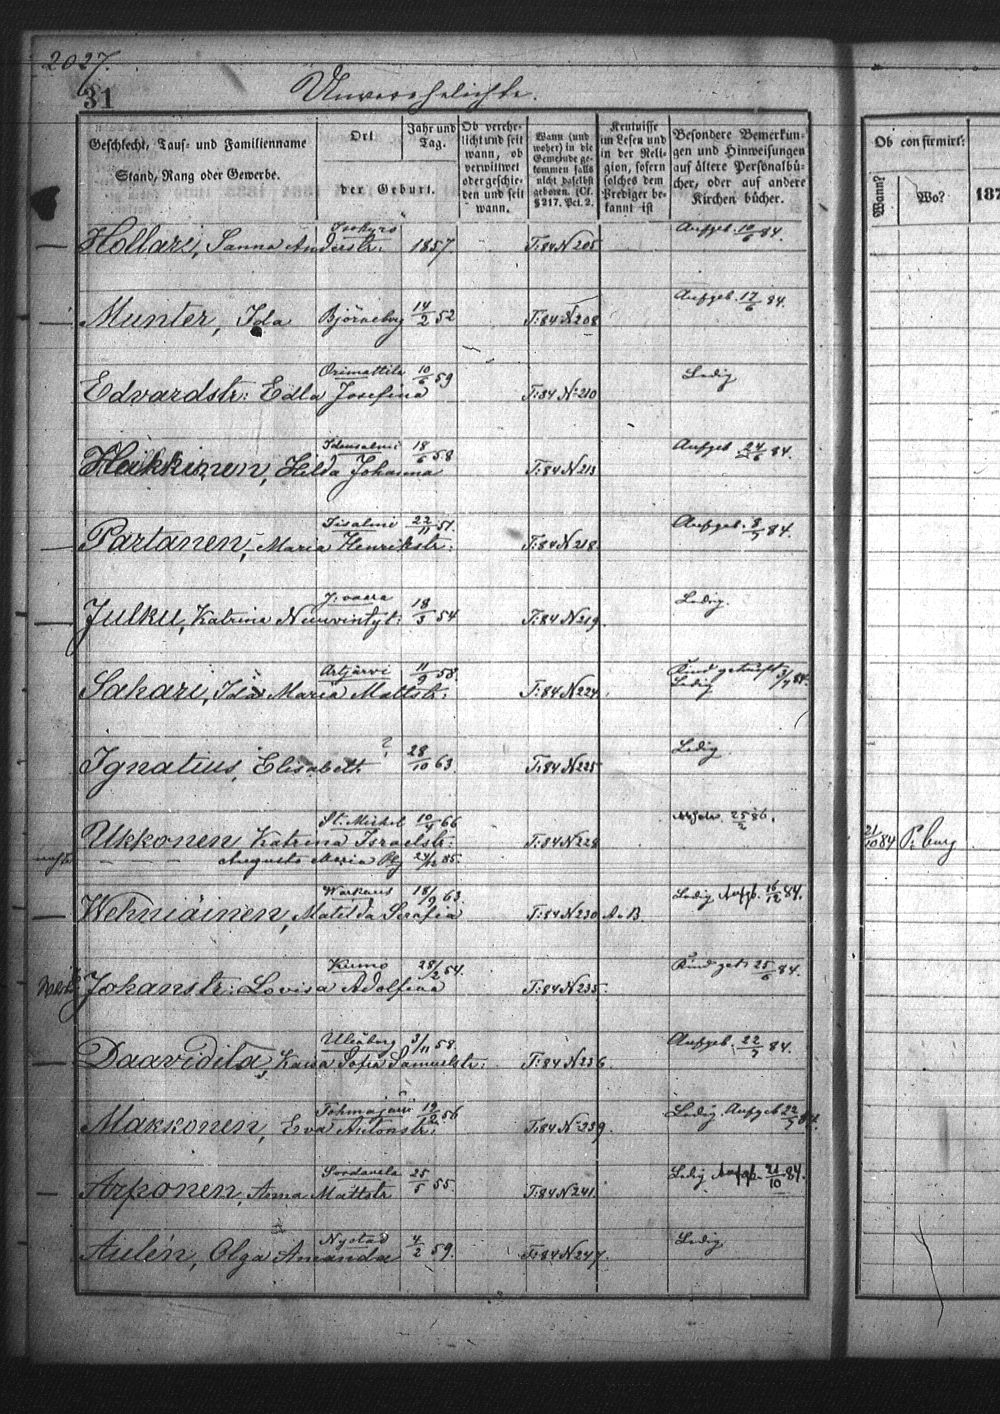 2027.
31
Unverehelichte.
Geschlecht, Tauf- und Familienname
Stand, Rang oder Gewerbe.
Ort
Jahr und Tag.
der Geburt.
Ob verehe-
licht und seit
wann, ob
verwittwet
oder geschie-
den und seit
wann.
Wann (und
woher) in die
Gemeinde ge-
kommen falls
nicht daselbst
geboren. (Cf.
§ 217. Pct. 2.
Kentnisse
im Lesen und
in der Reli-
gion, sofern
solches dem
Prediger be-
kannt ist
Besondere Bemerkun-
gen und Hinweisungen
auf ältere Personalbü-
cher, oder auf andere
Kirchen bücher.
Ob confirmirt:
Wann?
Wo?
187
Hollari, Sanna Anderstr: Isokyrö 1857. T:84 N205 Aufgeb. 10/6 84.
Munter, Ida Björneborg 14/2 52 T:84 N208 Aufgeb. 17/6 84.
Edvardstr: Edla Josefina Orimattila 10/6 59 T:84 N:210 Ledig
Hakkinen, Hilda Johanna Idensalmi 18/6 58 T:84 N213 Aufgeb. 24/6 84.
Partanen, Maria Henrikstr: Iisalmi 22/11 51. T:84 N218. Aufgeb. 8/7 84.
Julku, Katrina 18/3 54 T:84 N219. Ledig.
Sakari, Ida Maria Mattstr: Artjärvi 11/9 58. T:84 N224. Kind getauft 3/4 84. Ledig
Ignatius, Elisabeth ? 28/10 63. T:84 N225 Ledig
Ukkonen, Katrina Israelstr: St. Michel 10/4 66 T:84 N228 25/2 86. 21/10 84 P: burg
Augusta Maria 85.
Wehniäinen, Matilda Serafia Warkaus 18/9 63. T:84 N230 A.B. Ledig. Aufgb. 16/12 84.
Johanstr: Lovisa Adolfina Kumo 28/2 54. T:84 N235. Kind get. 25/6 84.
Daavidila, Kaisa Sofia Samuelstr: Uleåborg 3/11 58. T:84 N236. Aufgeb. 22/7 84.
Makkonen, Eva Antonstr: Tohmajärvi 19/12 56 T:84 N:239. Ledig. Aufgeb 22/7 84.
Arponen, Anna Mattstr Sordavala 25/5 55. T:84 N241. Ledig Aufgb. 21/10 84.
Aulén, Olga Amanda Nystad 4/2 59. T:84 N247. Ledig